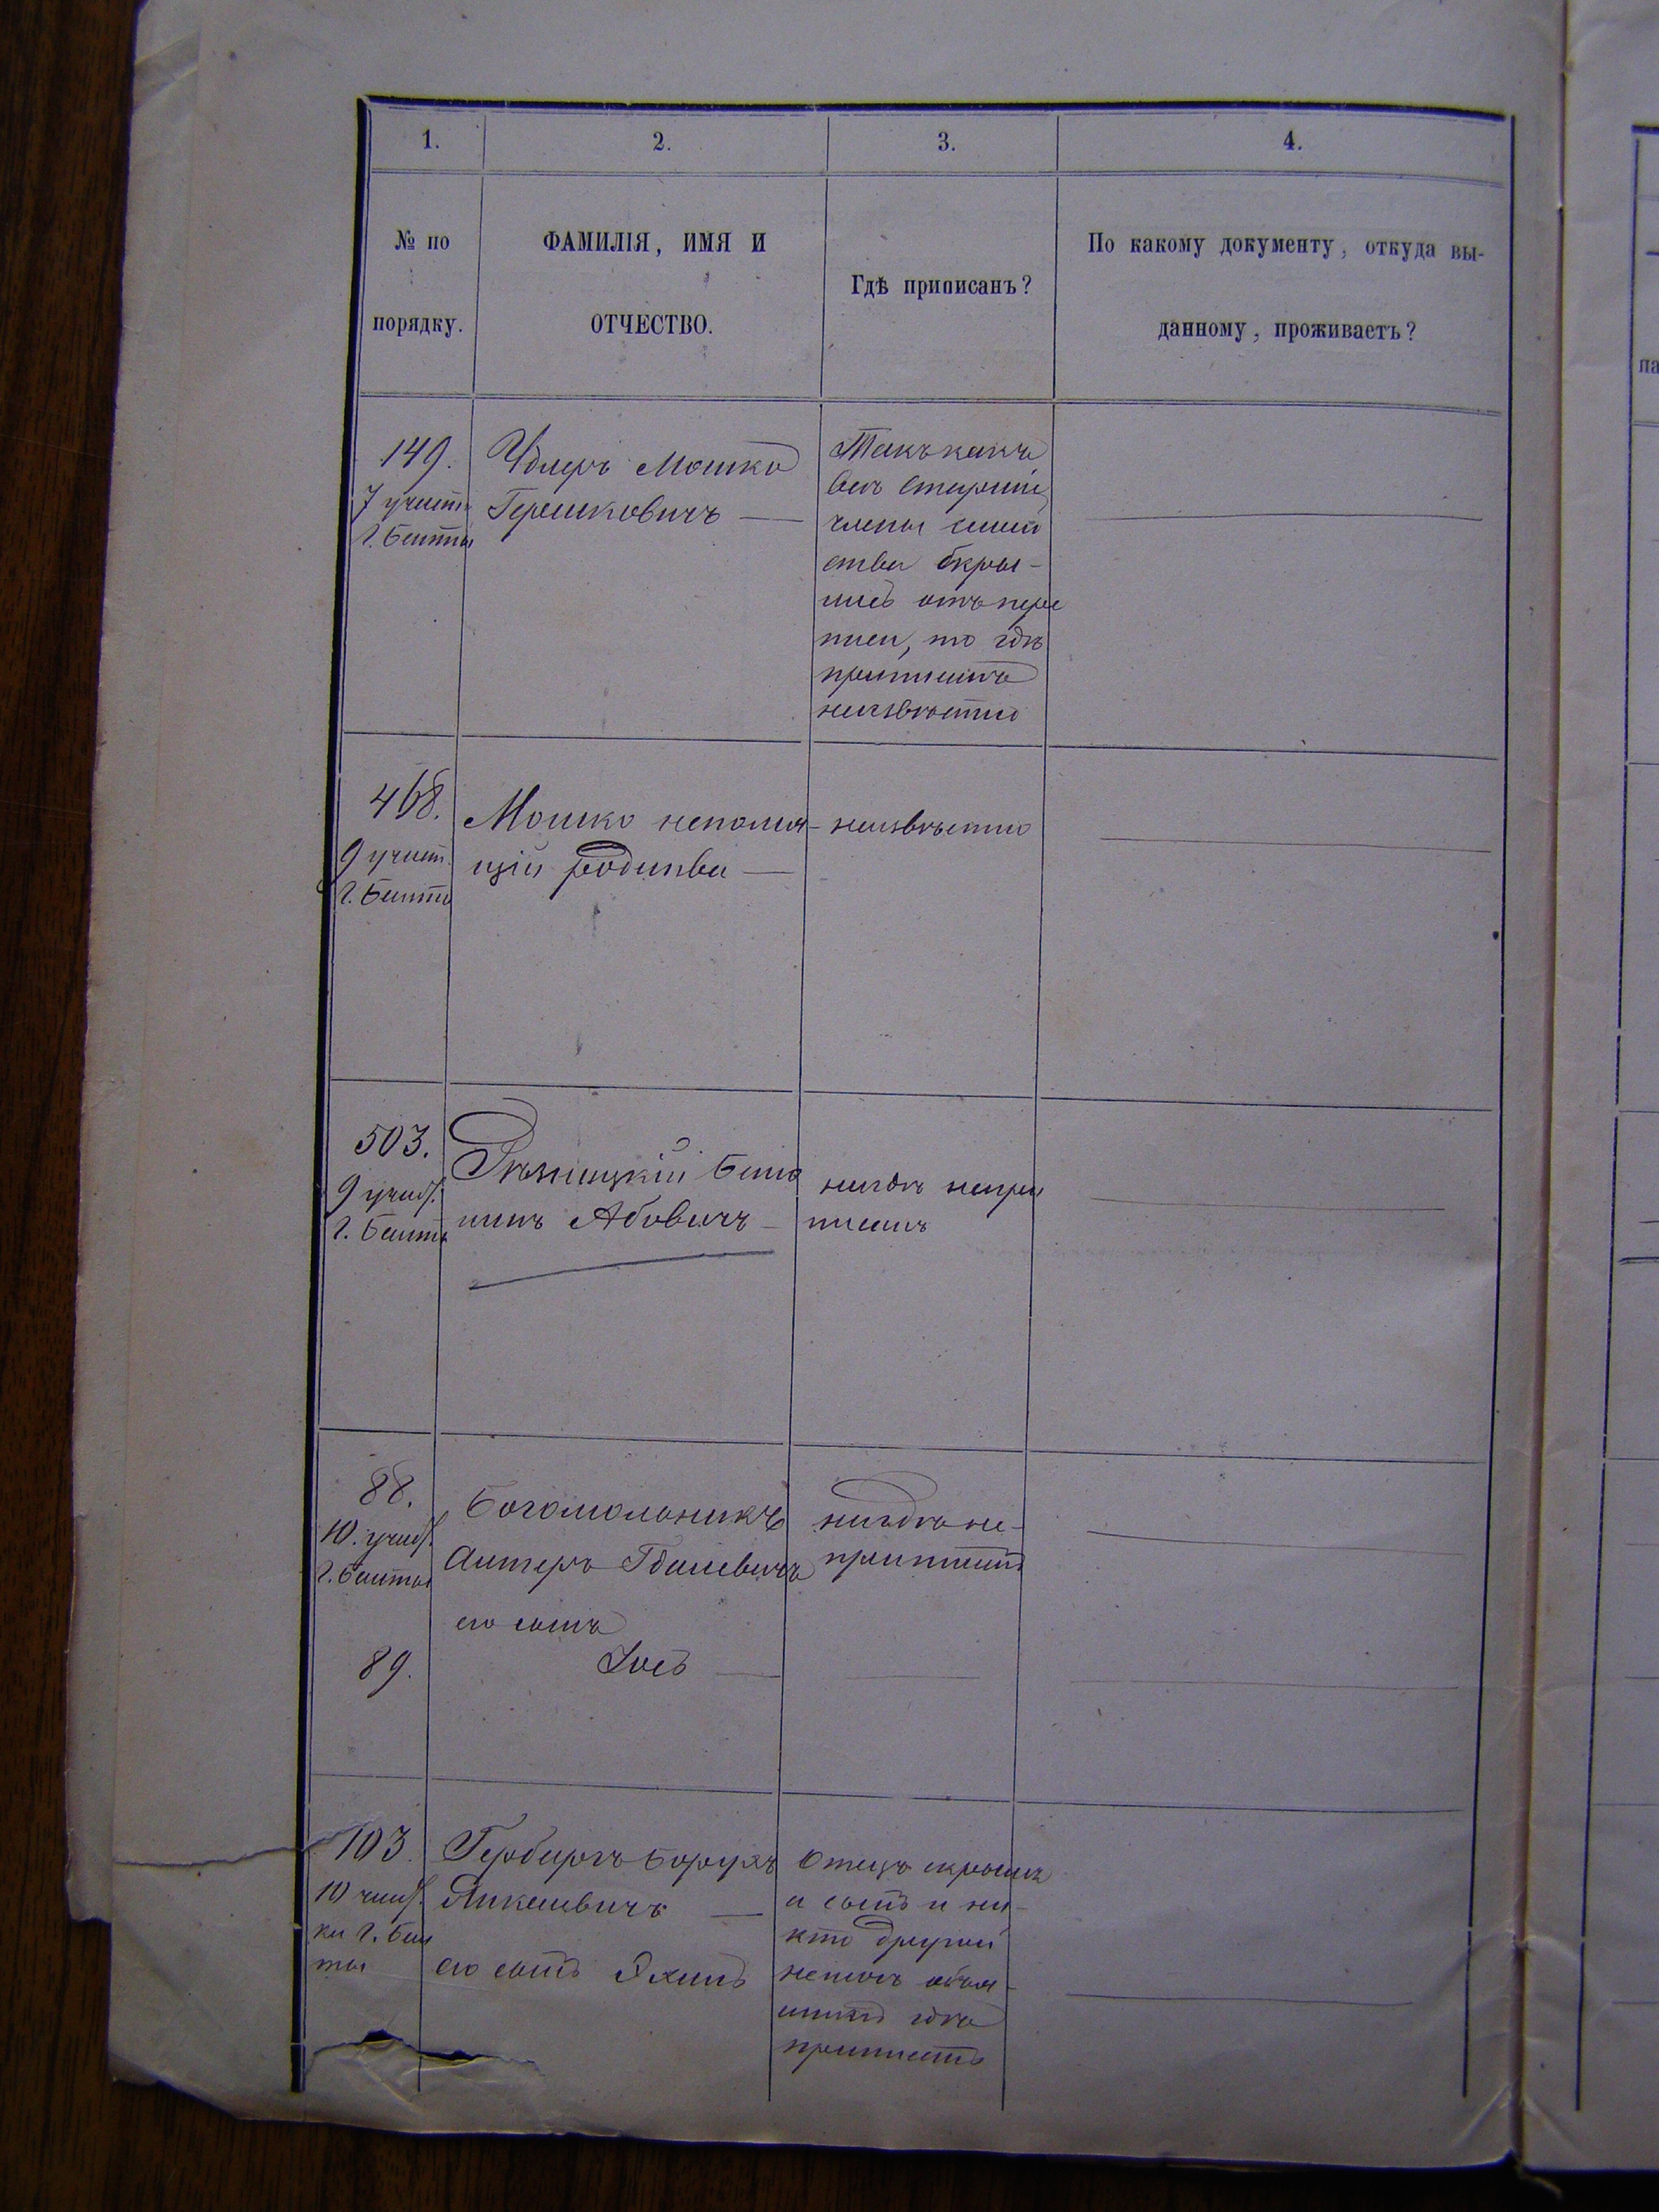 1.
2.
3.
4.
№ по
порядку.
ФАМИЛІЯ, ИМЯ И
ОТЧЕСТВО.
Гдѣ приписанъ?
По какому документу, откуда вы-
данному, проживаетъ?
па
149.
7 участ.
Г. Балты
Мошко
Гершковичъ —
Такъ какъ
всѣ старшіе
члены семей
ства скры-
лись отъ пере
писи, то гдѣ
приписанъ
неизвѣстно
468.
9 участ.
Г. Балты
Мошко непомня-
щій родства —
неизвѣстно
503.
9 участ.
Г. Балты
Рѣзницкій Бенъ
минъ Абовичъ —
нигдѣ непри
писанъ
88.
10. участ.
Г. Балты
Богомольникъ
Алтеръ
его сынъ
нигдѣ не-
приписанъ
89.
Іосъ —
103.
10 участ.
ка г. Бал
ты
Гербергъ Борухъ
Янкелевичъ —
его сынъ
Отецъ скрылся
а сынъ и ни-
кто другой
немогъ объя-
снить гдѣ
приписанъ